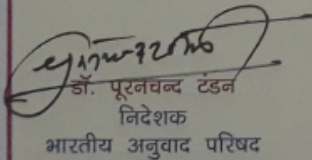 डॉ. पूरनचन्द टंडन
निदेशक
भारतीय अनुवाद परिषद